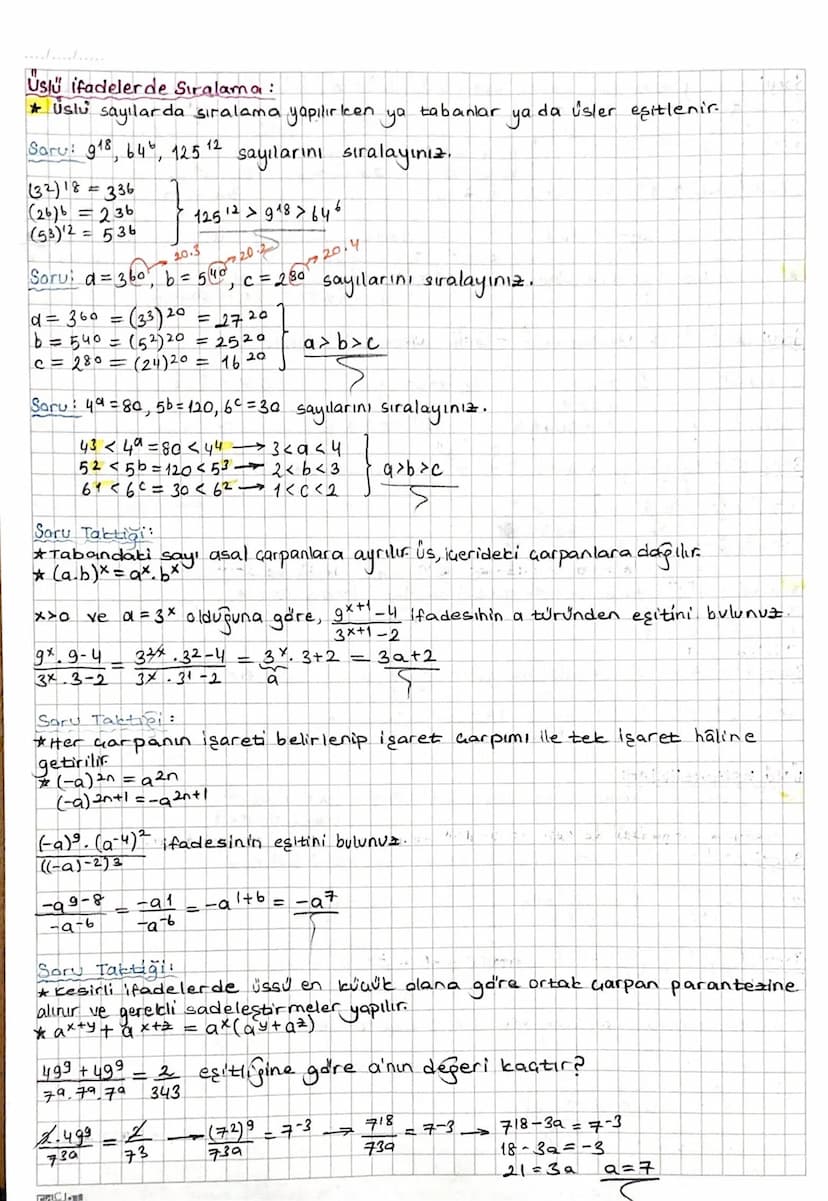 Üslü ifadelerde Sıralama:
★ Üslü sayılarda sıralama yapılırken ya tabanlar ya da üsler eşitlenir.
Soru: 9¹⁸, 64⁶, 125¹² sayılarını sıralayınız.
(3²)¹⁸ = 3³⁶
(2⁶)⁶ = 2³⁶
(5³)¹² = 5³⁶
125¹² > 9¹⁸ > 64⁶
20.3 20.2 20.4
Soru: a = 3⁶⁰, b = 5⁴⁰, c = 2⁸⁰ sayılarını sıralayınız.
a = 3⁶⁰ = (3³)²⁰ = 27²⁰
b = 5⁴⁰ = (5²)²⁰ = 25²⁰
c = 2⁸⁰ = (2⁴)²⁰ = 16²⁰
a > b > c
Soru: 4ᵃ = 80, 5ᵇ = 120, 6ᶜ = 30 sayılarını sıralayınız.
4³ < 4ᵃ = 80 < 4⁴ → 3 < a < 4
5² < 5ᵇ = 120 < 5³ → 2 < b < 3
6¹ < 6ᶜ = 30 < 6² → 1 < c < 2
a > b > c
Soru Taktiği:
★ Tabandaki sayı asal çarpanlara ayrılır. Üs, içerideki çarpanlara dağılır.
★ (a.b)ˣ = aˣ.bˣ
x>0 ve a = 3ˣ olduğuna göre, (9ˣ⁺¹-4)/(3ˣ⁺¹-2) ifadesinin a türünden eşitini bulunuz.
(9ˣ.9-4)/(3ˣ.3-2) = (3²ˣ.3²-4)/(3ˣ.3¹-2) = 3ˣ.3+2 = 3a+2
a
Soru Taktiği:
★ Her çarpanın işareti belirlenip işaret çarpımı ile tek işaret hâline
getirilir.
★ (-a)²ⁿ = a²ⁿ
(-a)²ⁿ⁺¹ = -a²ⁿ⁺¹
((-a)⁹.(a⁻⁴)²)/((-a)⁻²)³ ifadesinin eşitini bulunuz.
(-a⁹⁻⁸)/(-a⁻⁶) = (-a¹)/(-a⁻⁶) = -a¹⁺⁶ = -a⁷
Soru Taktiği:
★ Kesirli ifadelerde üssü en küçük olana göre ortak çarpan parantezine
alınır ve gerekli sadeleştirmeler yapılır.
★ aˣ⁺ʸ + aˣ⁺ᶻ = aˣ(aʸ+aᶻ)
(49⁹ + 49⁹)/(7ᵃ.7ᵃ.7ᵃ) = 2/343 eşitliğine göre a'nın değeri kaçtır?
(2.49⁹)/7³ᵃ = 2/7³ → (7²)⁹/7³ᵃ = 7⁻³ → 7¹⁸/7³ᵃ = 7⁻³ → 7¹⁸⁻³ᵃ = 7⁻³
18-3a = -3
21 = 3a a = 7